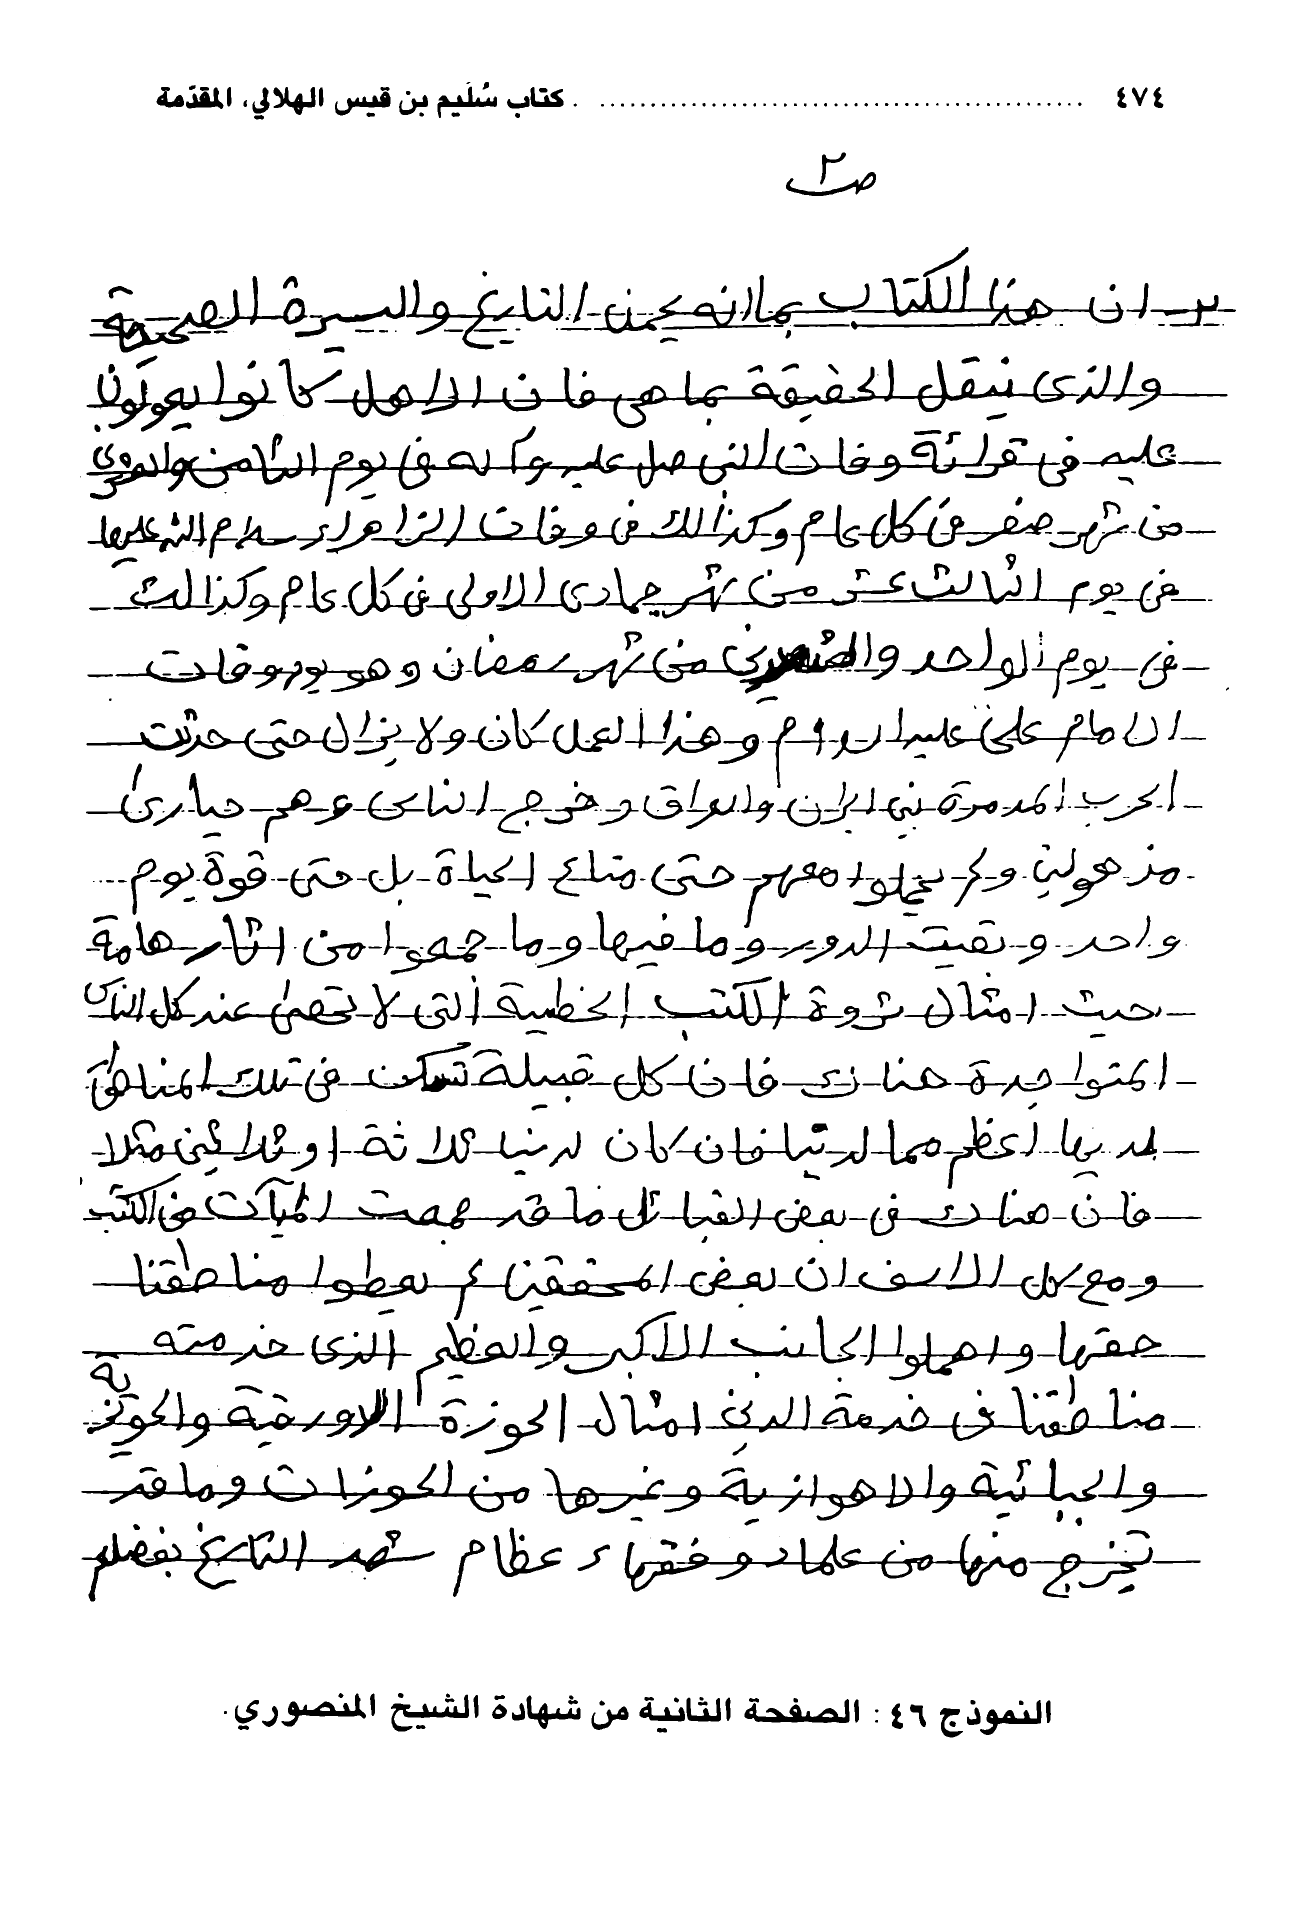 ٤٧٤ ................................................ كتاب سُلَيم بن قيس الهلالي، المقدّمة
ص٢
ان هذا الكتاب بما انه يحمل التاريخ والسيرة الصحيحة
والذى ينقل الحقيقة بما هي فان الاهل كانوا يعولون
عليه في قرائة وفات النبي صل عليه وآله في يوم الثامن والعشرين
من شهر صفر في كل عام وكذالك في وفات الزاهراء سلام الله عليها
في يوم الثالث عشر من شهر جمادى الاولى في كل عام وكذالك
في يوم الواحد والعشرين من شهر رمضان وهو يوم وفات
الامام علي عليه السلام وهذا العمل كان ولا يزال حتى حدثت
الحرب المدمرة بين ايران والعراق وخرج الناس وهم حيارى
مذهولين ولم يحملوا معهم حتى متاع الحياة بل حتى قوة يوم
واحد وبقيت الدور وما فيها وما جمعوا من اثار هامة
حيث امثال ثروة الكتب الخطية التي لا تحصى عند كل الناس
المتواجدة هناك فان كل قبيلة تسكن في تلك المناطق
لديها اعظم مما لدينا فان كان لدينا ثلاثة او ثلاثين مثلا
فان هناك في بعض القبائل ما قد جمعت المآت من الكتب
ومع كل الاسف ان بعض المحققين لم يعطوا مناطقنا
حقها واهملوا الجانب الاكبر والعظيم الذى خدمته
مناطقنا في خدمة الدين امثال الحوزة الدورقية والحويزية
والجبائية والاهوازية وغيرها من الحوزات وما قد
تخرج منها من علماء وفقهاء عظام شهد التاريخ بفضلهم
النموذج ٤٦ : الصفحة الثانية من شهادة الشيخ المنصوري.